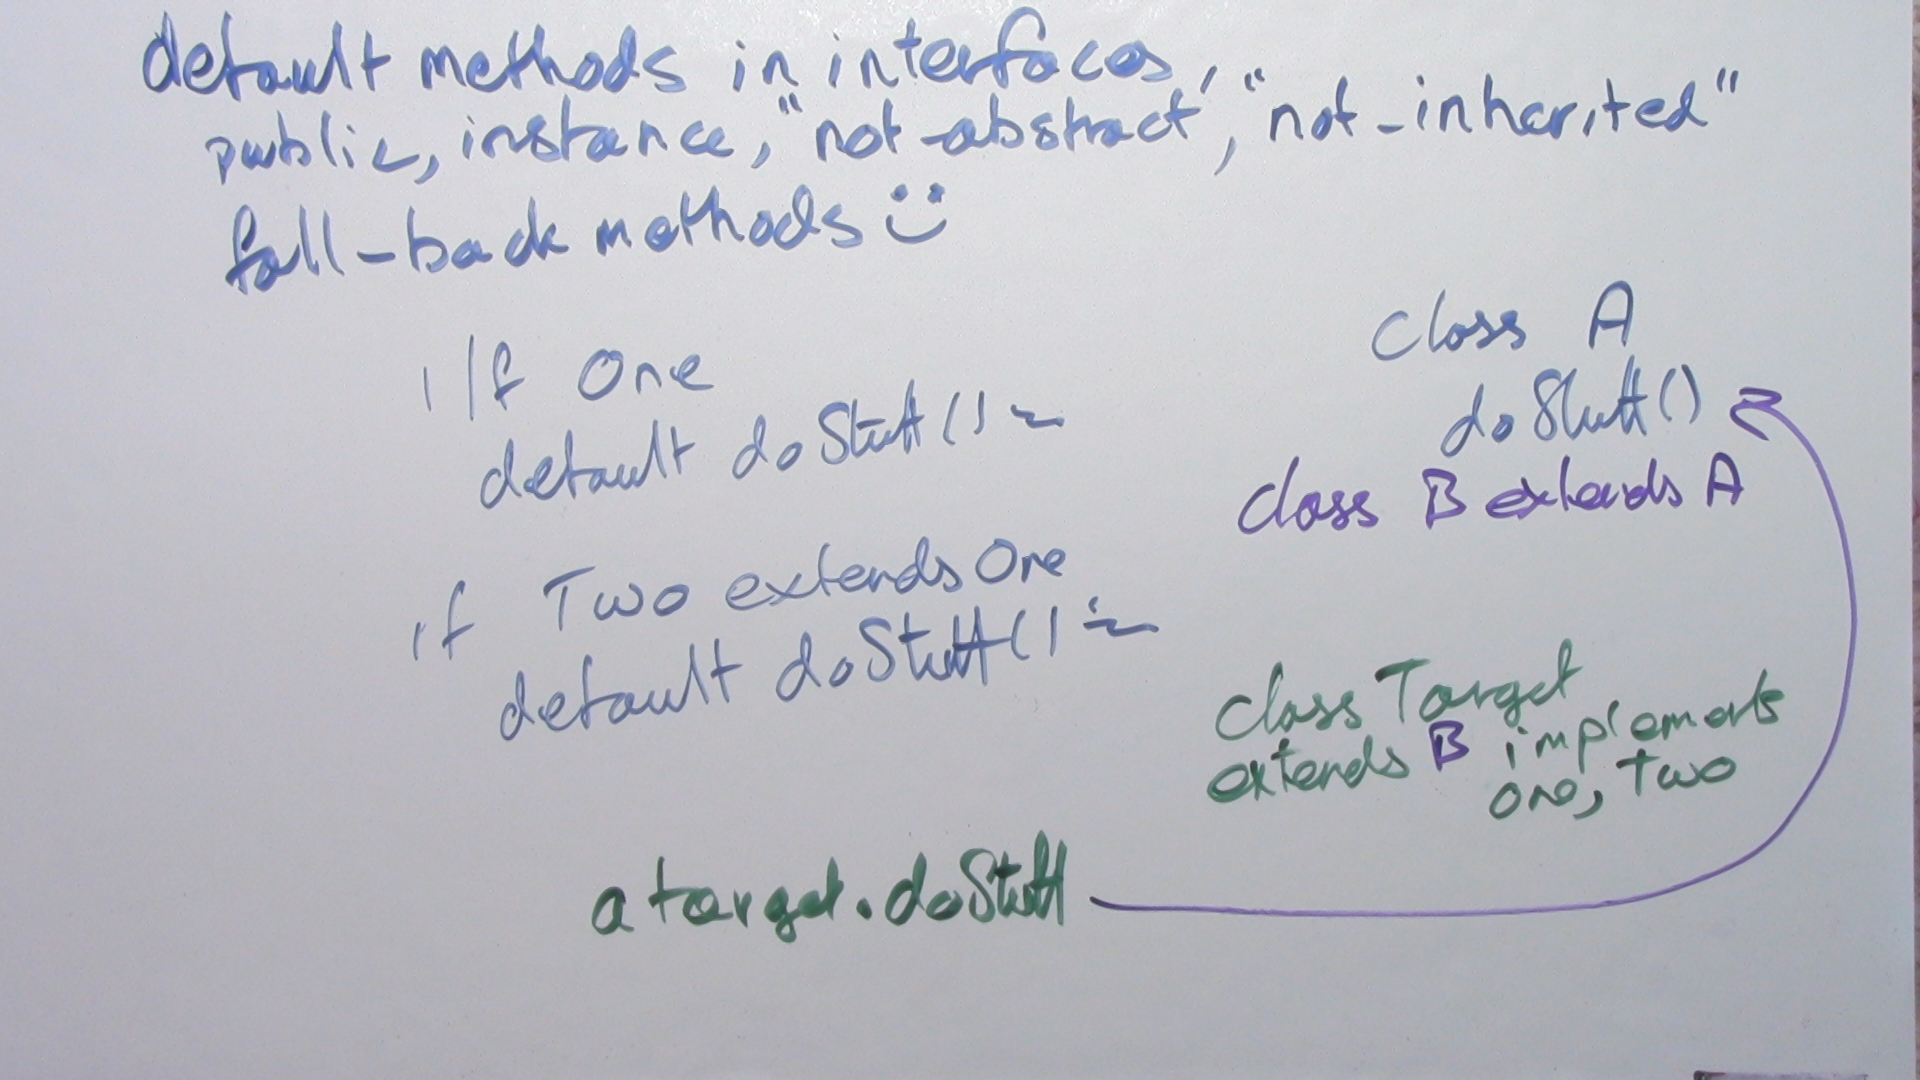 default methods in interfaces,
public, instance, "not-abstract", "not-inherited"
fall-back methods
i/f One
default doStuff()
if Two extends One
default doStuff()
class A
doStuff()
class B extends A
class Target
extends B implements
One, Two
a target.doStuff